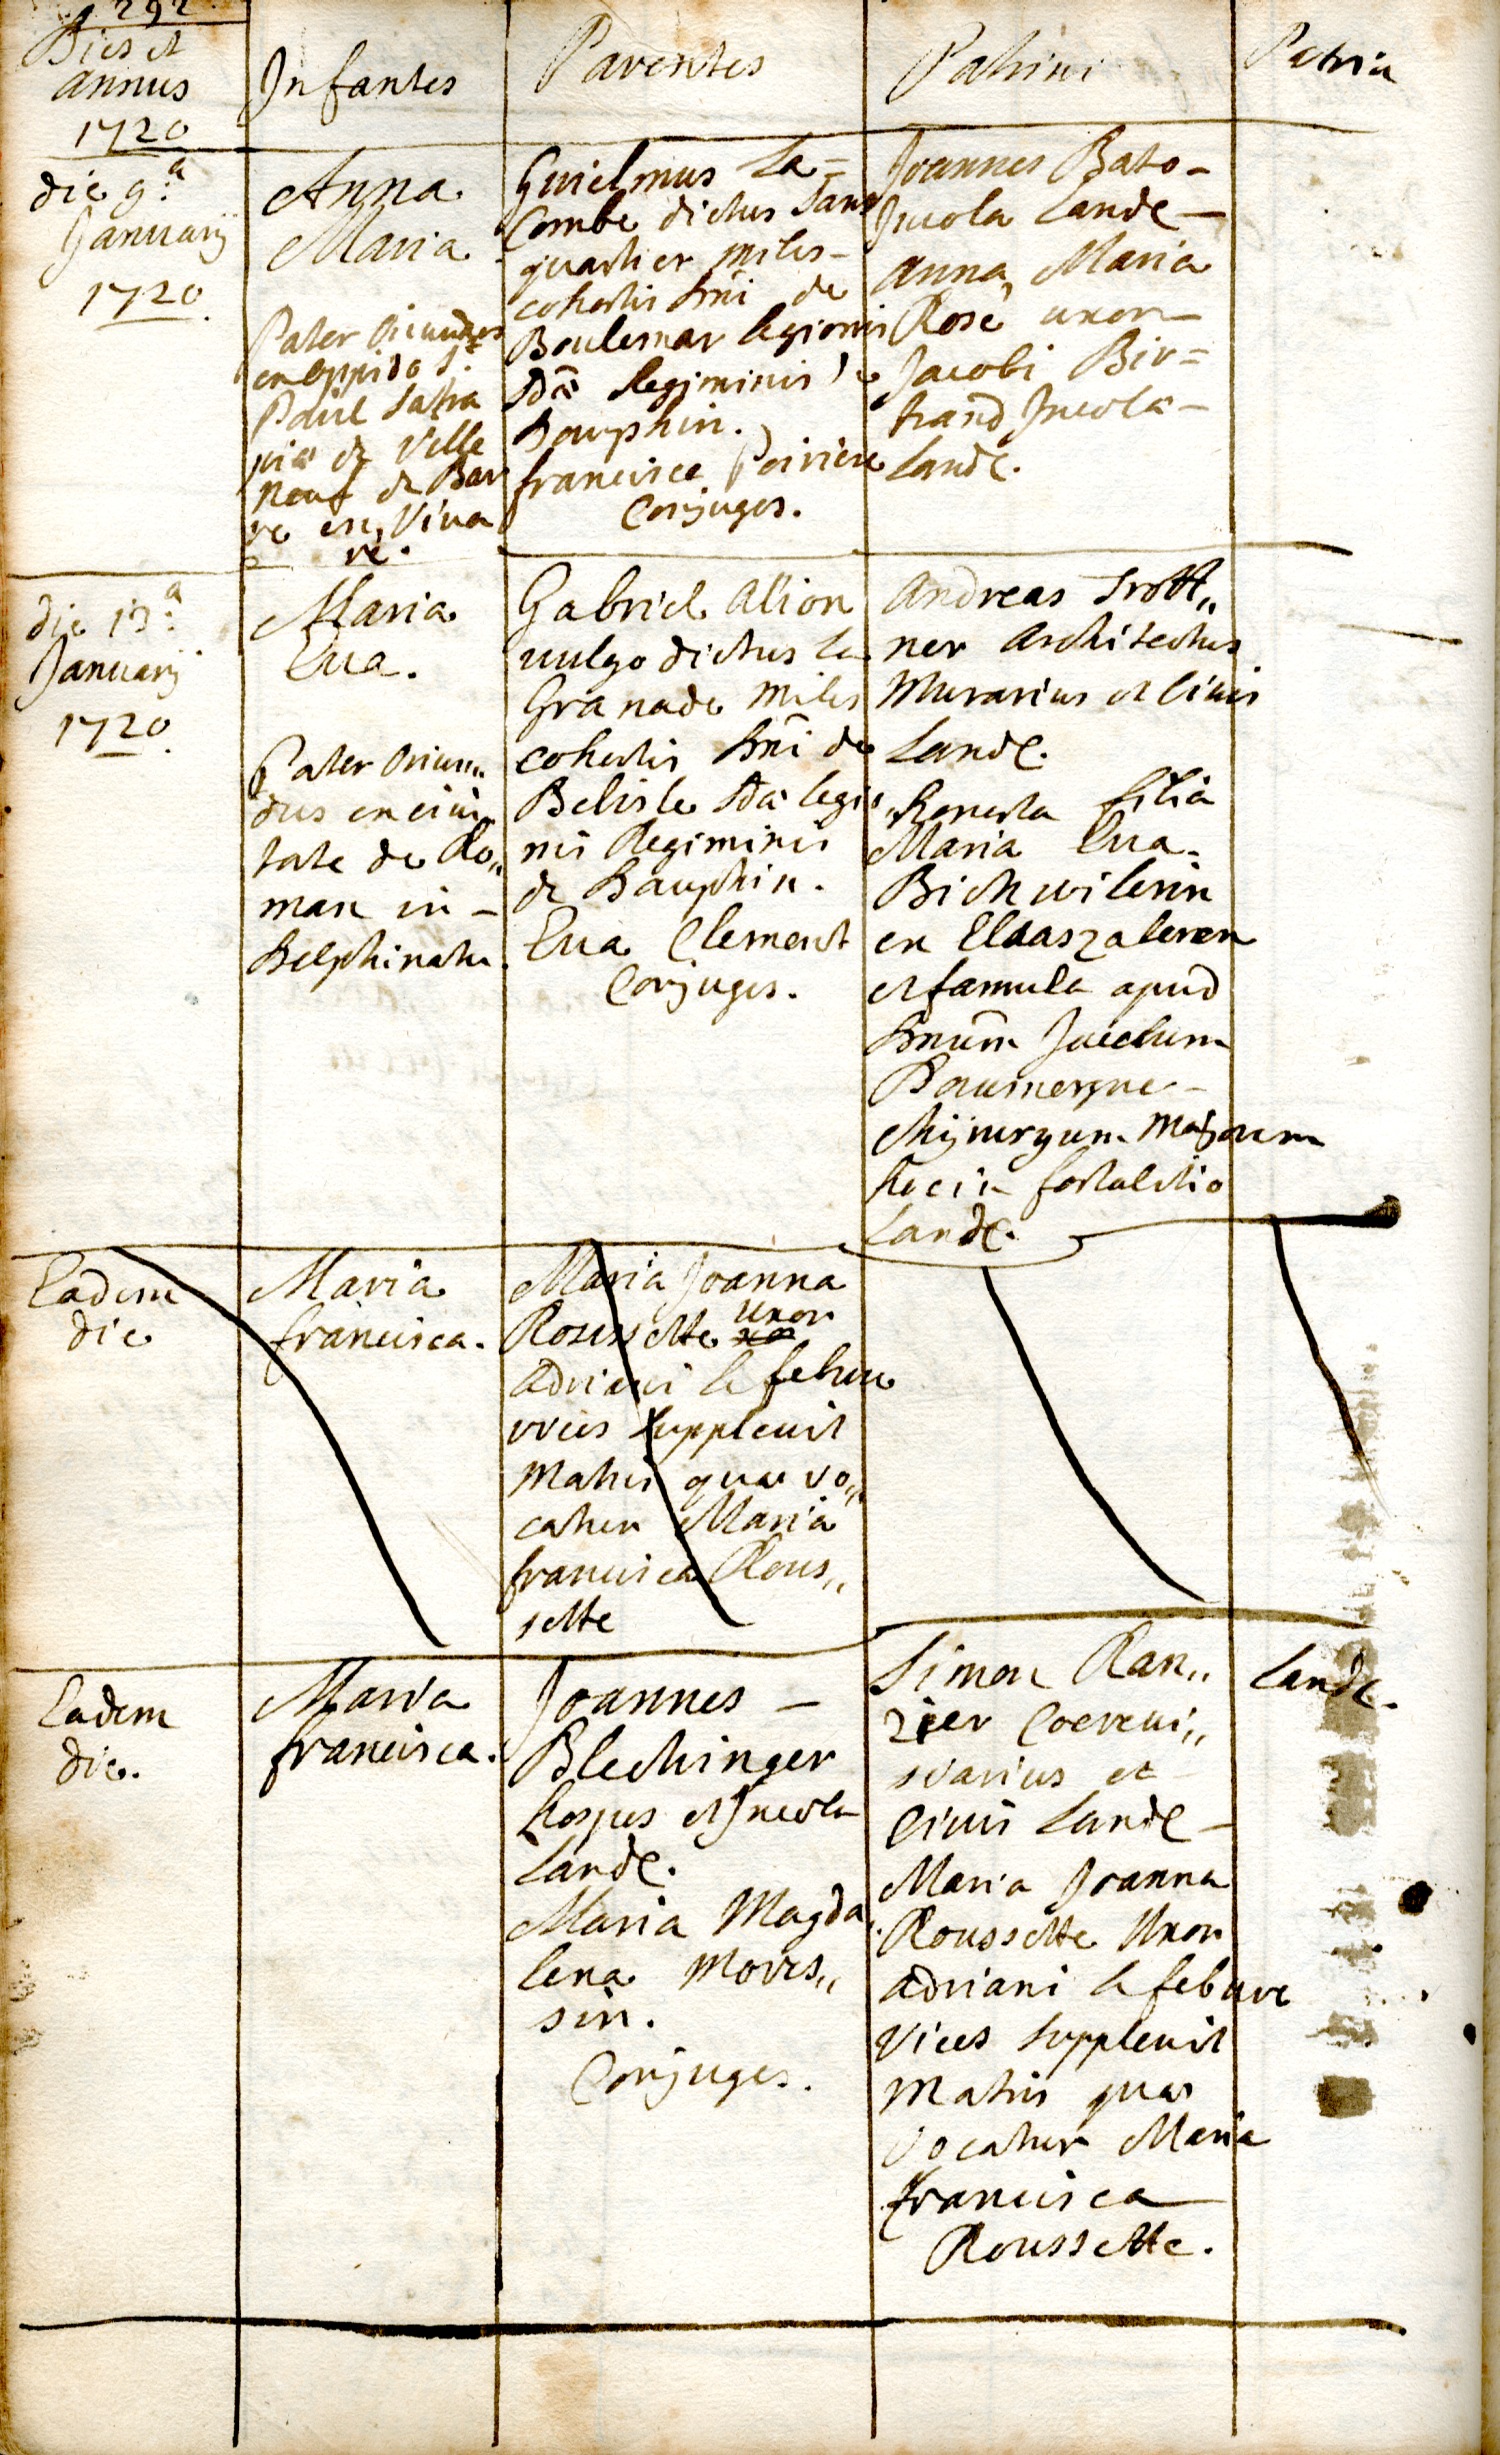 292.
Dies et
annus
1720
Infantes
Parentes
Patrini
Patria
die 9.a
Januarij
1720.
Anna
Maria
Pater oriundus
ex oppido St.
Paul
de Ville
neuf de Bar
re en Viua
re.
Guielmus La=
Combe dictus Sans
quartier miles
cohortis Dni de
Boulemar legionis
2dæ Regiminis de
Dauphin.
francisca Poiriere
Conjuges.
Joannes Bato-
Incola Landæ-
anna Maria
Rosé uxor-
Jacobi Bir=
trand Incolæ-
Landæ.
die 13.a
Januarij
1720.
Maria
Eua.
Pater Oriun„
dus ex ciui
tate de Ro„
man in-
Delphinatu.
Gabriel Alion
uulgo dictus la
Granade miles
cohortis Dni de
Belisle 2dæ legio
nis Regiminis
de Dauphin.
Eua Clement
Conjuges.
Andreas Trott„
ner Architectus
Murarius et Ciuis
Landæ.
honesta filia
Maria Eua-
Bichwilerin
ex Elsaszaberen
et famula apud
Dnum
chijrurgum Majorem
hoc in fortalitio
Landæ.
Eadem
die
Maria
francisca.
Maria Joanna
Roussette uxor
Adriani le febure
vices suppleuit
Matris quæ vo„
catur Maria
francisca Rous„
sette
Eadem
die.
Maria
francisca.
Joannes -
Blechinger
hospes et Incola
Landæ.
Maria Magda
lena Mores„
sin.
Conjuges.
Simon Ran„
zier Coereui„
siarius et
Ciuis Landæ-
Maria Joanna
Roussette Uxor
Adriani le febure
Vices suppleuit
Matris quæ
Vocatur Maria
francisca
Roussette.
Landæ.